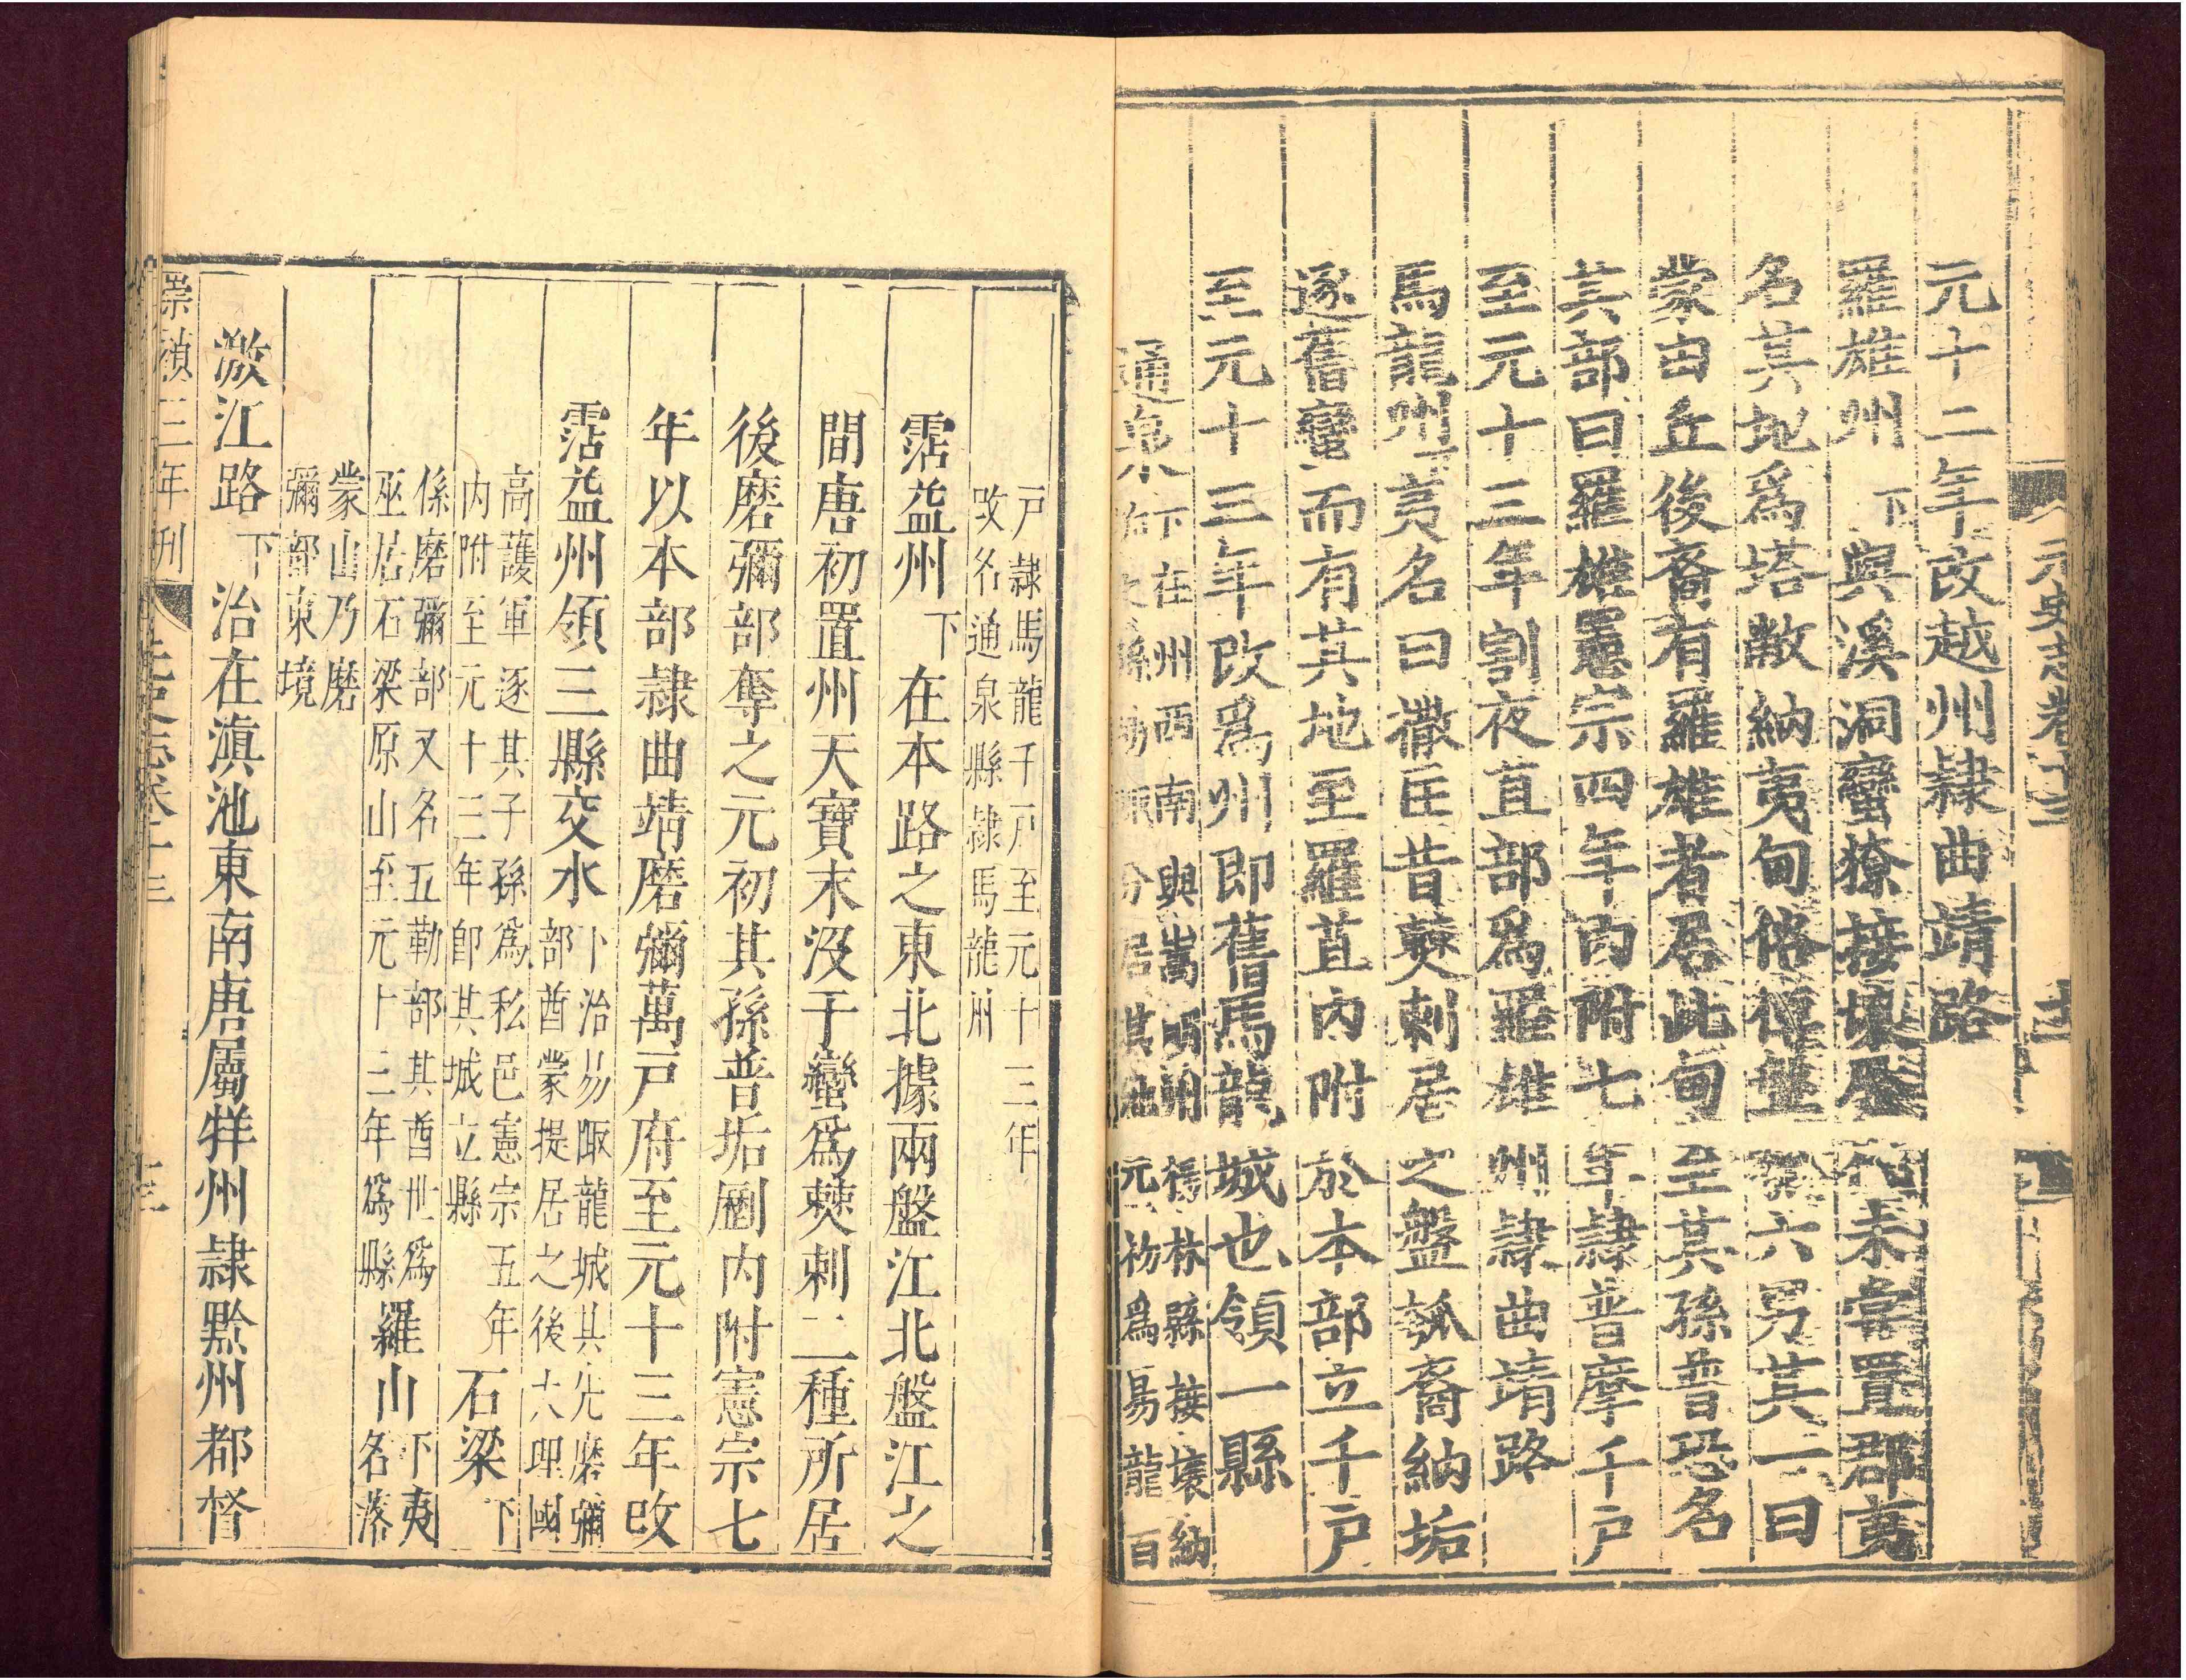 元史志卷十三
元十二年改越州隸曲靖路
羅雄州下與溪洞蠻獠接壤歷代未嘗置郡夷
名其地爲塔敝納夷甸俗傳盤瓠六男其一曰
蒙由丘後裔有羅雄者居此甸至其孫普恐名
其部曰羅雄憲宗四年內附七年隸普摩千戶
至元十三年割夜苴部爲羅雄州隸曲靖路
馬龍州下夷名曰撒匡昔僰剌居之盤瓠裔納垢
逐舊蠻而有其地至羅苴內附於本部立千戶
至元十三年改爲州即舊馬龍城也領一縣
通泉下在州西南與嵩明州楊林縣接壤納
垢之孫易陬分居其地元初爲易龍百
戶隸馬龍千戶至元十三年
攺名通泉縣隸馬龍州
霑益州下在本路之東北據兩盤江北盤江之
間唐初置州天寶末沒于蠻爲僰剌二種所居
後磨彌部奪之元初其孫普垢㔶内附憲宗七
年以本部隷曲靖磨彌萬戸府至元十三年攺
霑益州領三縣交水下治易陬龍城其先磨彌
部酋蒙提居之後大理國
高護軍逐其子孫爲私邑憲宗五年
内附至元十三年卽其城立縣石梁下
係磨彌部又名五勒部其酋世爲
巫居石梁原山至元十三年爲縣羅山下夷
名落
蒙山乃磨
彌部東境
澂江路下治在滇池東南唐屬牂州隷黔州都督
崇禎三年刊
元史志卷十三
十三